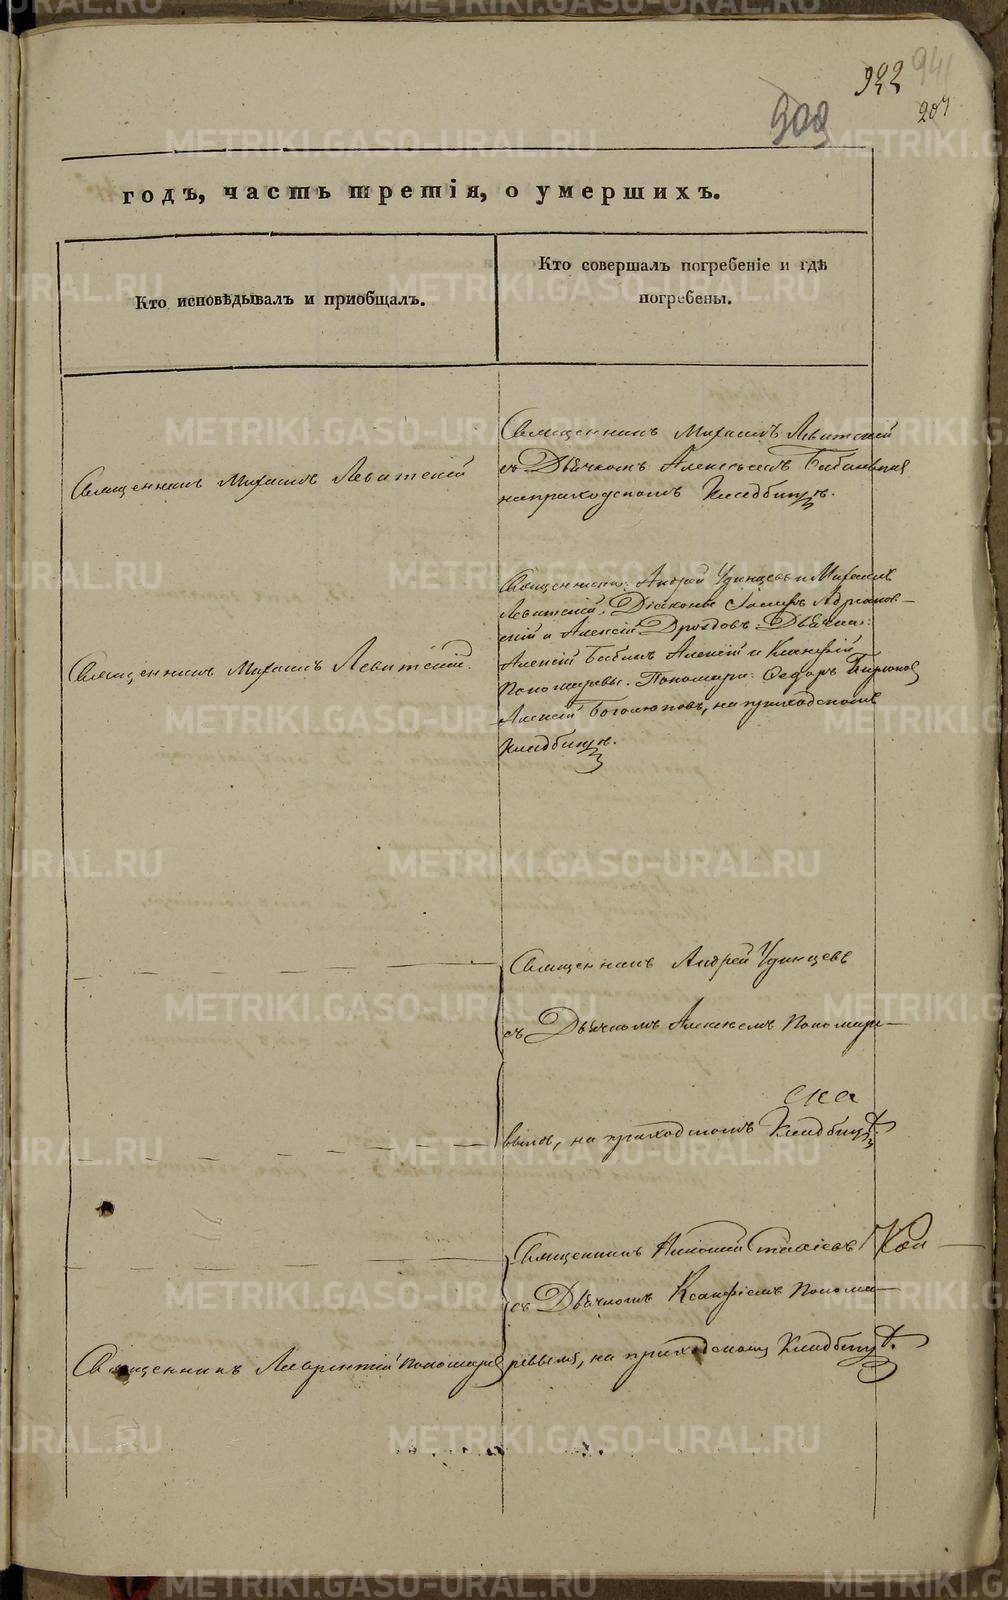 922 941
209 207
годъ, часть третія, о умершихъ.
Кто исповѣдывалъ и пріобщалъ.
Кто совершалъ погребеніе и гдѣ
погребены.
Священникъ Михаилъ Левитскій
Священникъ Михаилъ Левитскій
съ Дьячкомъ Алексѣемъ Бабинымъ
на приходскомъ Кладбищѣ.
Священникъ Михаилъ Левитскій.
Священники: Андрей Удинцевъ и Михаилъ
Левитскій, Діаконы Адріанов-
скій и Алексій Дроздовъ: Дьячки:
Алексій Бабинъ Алексій и Ксанфій
Пономаревы. Пономари: Федоръ Бирюковъ
Алексій Боголюповъ, на приходскомъ
Кладбищѣ.
Священникъ Андрей Удинцевъ
съ Дьячкомъ Алексѣемъ Пономаре-
вымъ, на приходскомъ Кладбищѣ.
Священникъ Стахіевъ
съ Дьячкомъ Ксанфіемъ Понома-
Священникъ Лаврентій Пономаревъ
ревымъ, на приходскомъ Кладбищѣ.
METRIKI.GASO-URAL.RU